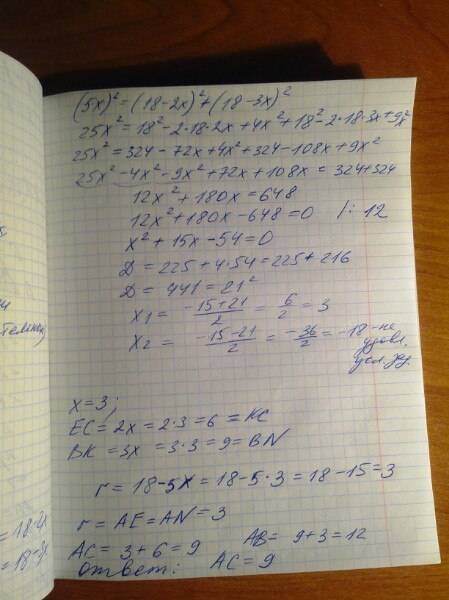 (5x)² = (18-2x)² + (18-3x)²
25x² = 18² - 2·18·2x + 4x² + 18² - 2·18·3x + 9x²
25x² = 324 - 72x + 4x² + 324 - 108x + 9x²
25x² - 4x² - 9x² + 72x + 108x = 324 + 324
12x² + 180x = 648
12x² + 180x - 648 = 0 /: 12
x² + 15x - 54 = 0
D = 225 + 4·54 = 225 + 216
D = 441 = 21²
x1 = (-15+21)/2 = 6/2 = 3
x2 = (-15-21)/2 = -36/2 = -18 - не
удовл.
усл. зад.
x = 3;
EC = 2x = 2·3 = 6 = KC
BK = 3x = 3·3 = 9 = BN
r = 18 - 5x = 18 - 5·3 = 18 - 15 = 3
r = AE = AN = 3
AC = 3 + 6 = 9 AB = 9 + 3 = 12
Ответ: AC = 9